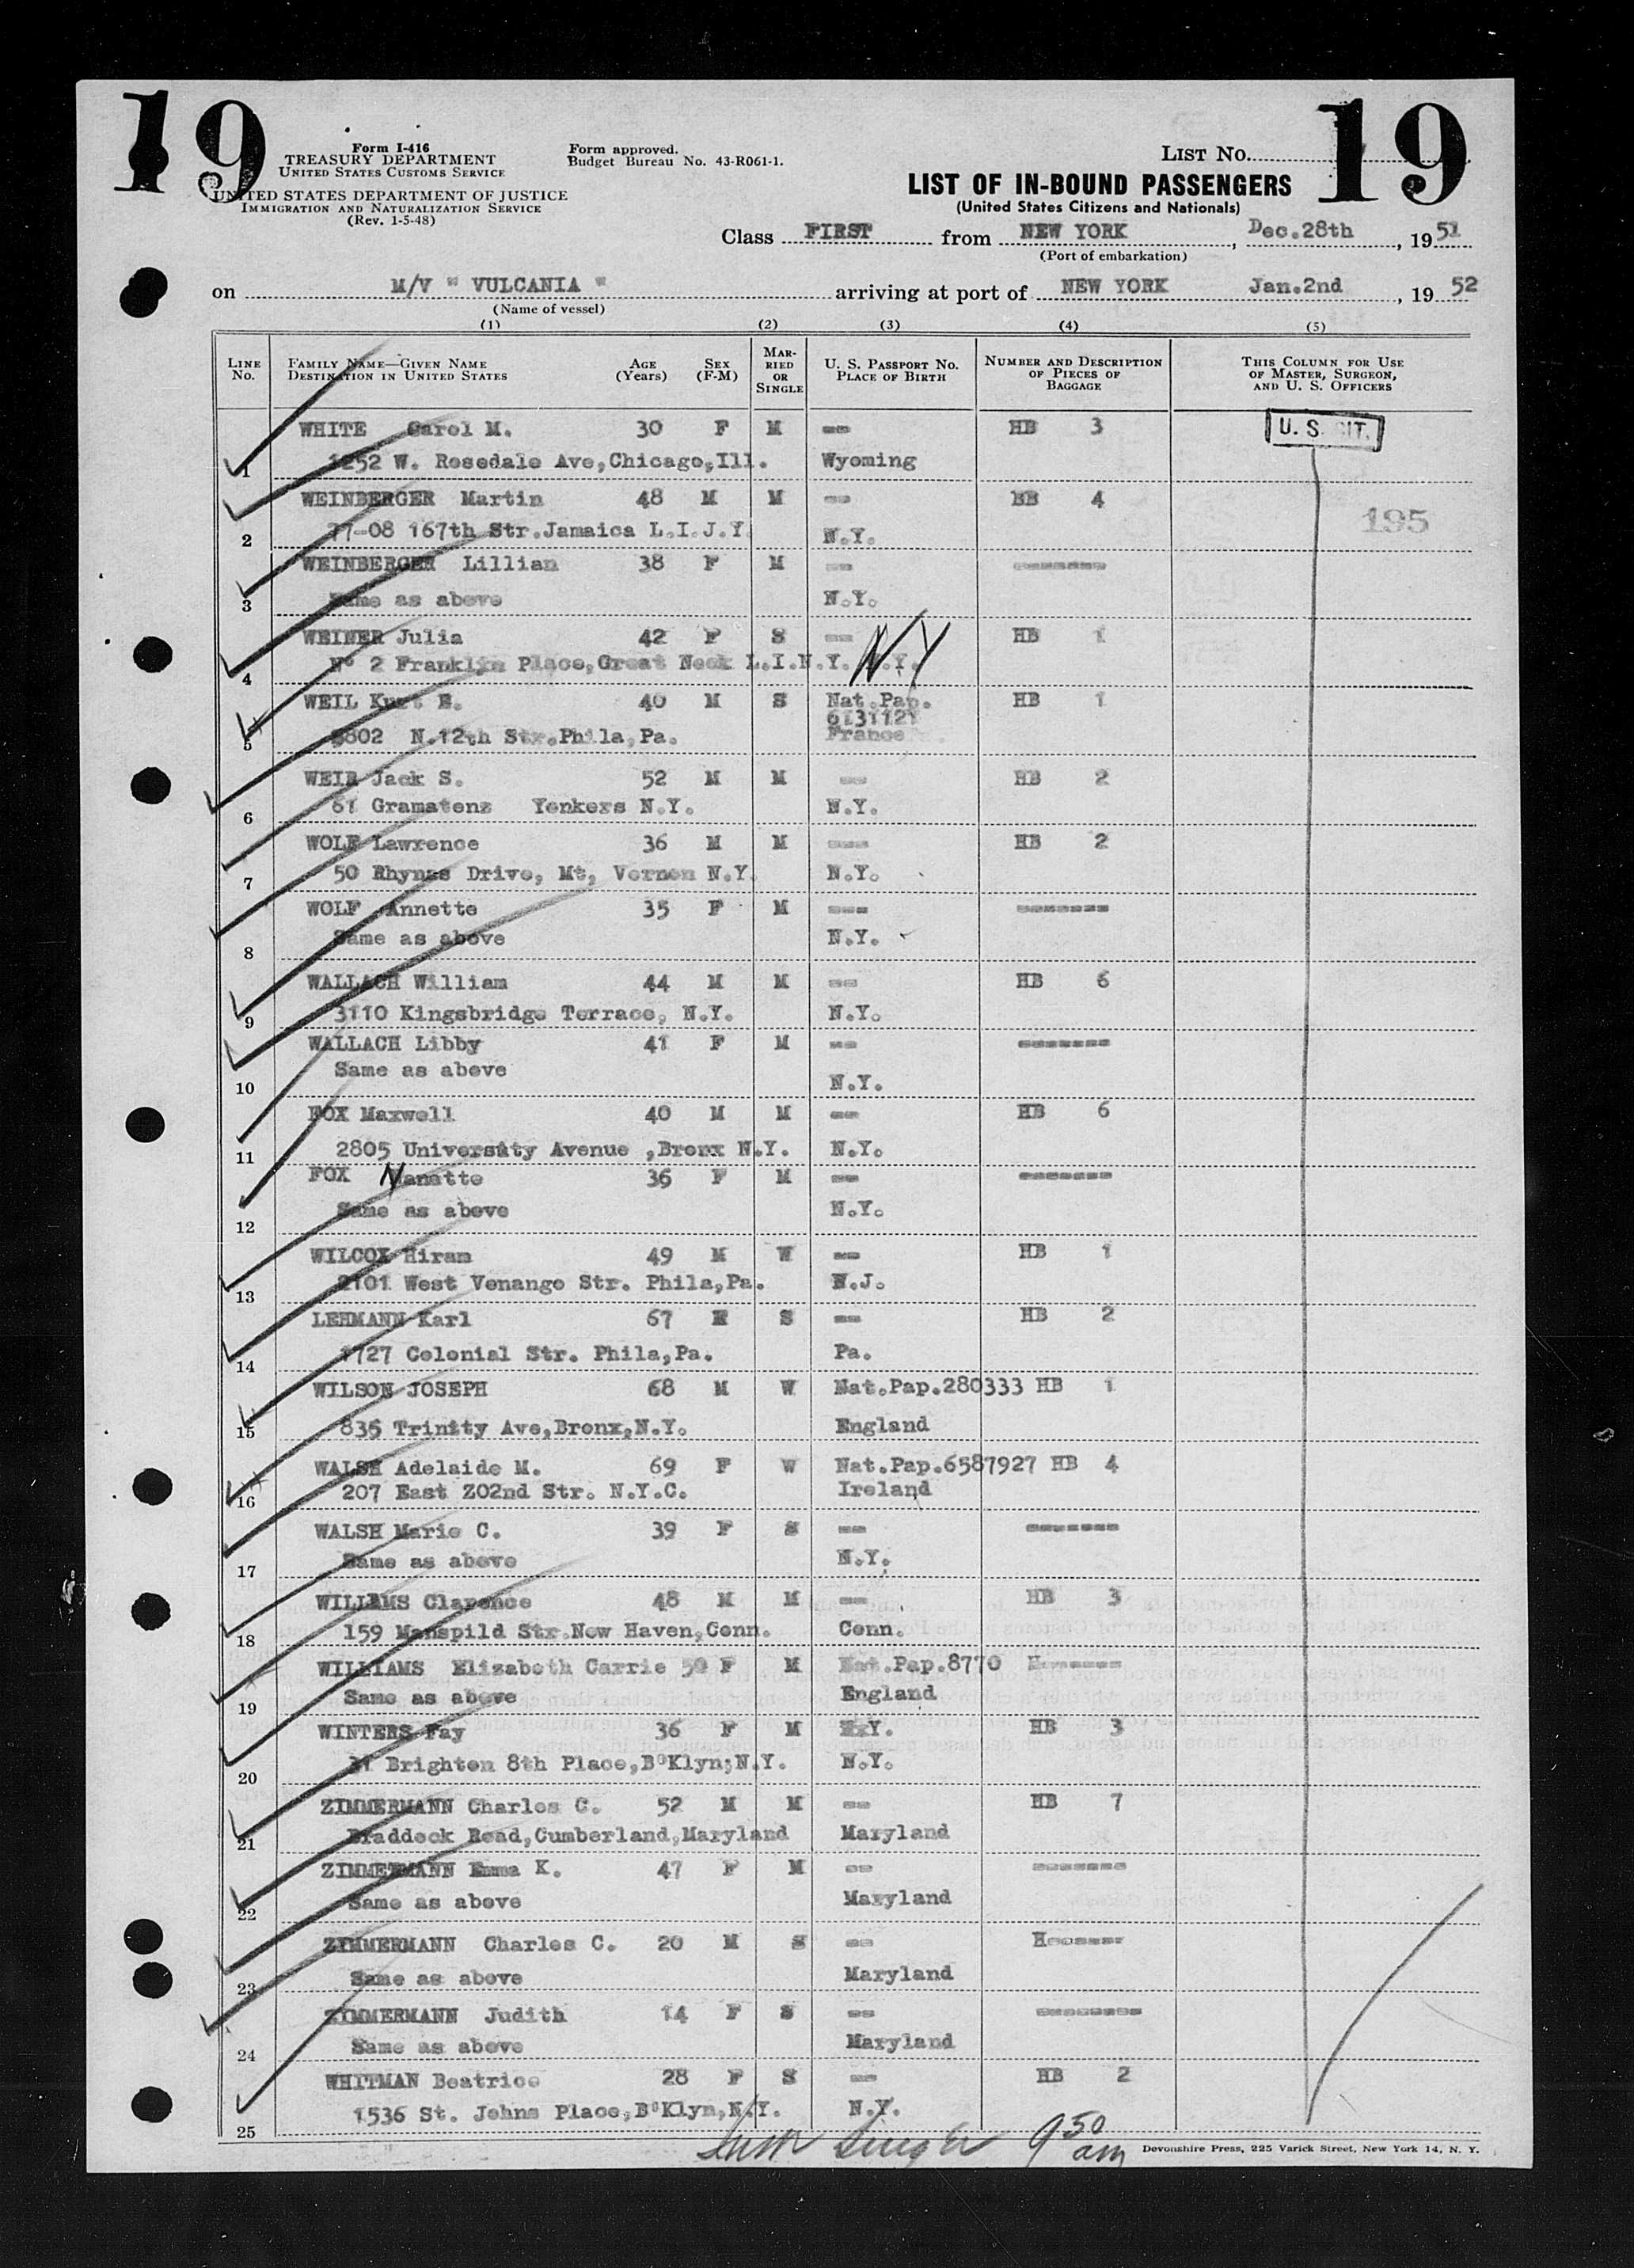 19
19
Form I-416
TREASURY DEPARTMENT
UNITED STATES CUSTOMS SERVICE
UNITED STATES DEPARTMENT OF JUSTICE
IMMIGRATION AND NATURALIZATION SERVICE
(Rev. 1-5-48)
Form approved.
Budget Bureau No. 43-R061-1.
LIST No.
LIST OF IN-BOUND PASSENGERS
(United States Citizens and Nationals)
Class FIRST from NEW YORK, Dec.28th, 1951
(Port of embarkation)
on M/V " VULCANIA " arriving at port of NEW YORK Jan.2nd, 19 52
(Name of vessel)
(1) (2) (3) (4) (5)
LINE No. FAMILY NAME—GIVEN NAME DESTINATION IN UNITED STATES AGE (Years) SEX (F-M) MARRIED OR SINGLE U. S. PASSPORT No. PLACE OF BIRTH NUMBER AND DESCRIPTION OF PIECES OF BAGGAGE THIS COLUMN FOR USE OF MASTER, SURGEON, AND U. S. OFFICERS
WHITE Carol M. 30 F M -- HB 3 U. S. CIT.
1 1252 W. Rosedale Ave,Chicago,Ill. Wyoming
WEINBERGER Martin 48 M M -- BB 4
195
2 77-08 167th Str.Jamaica L.I.J.Y. N.Y.
WEINBERGER Lillian 38 F M -- -------
3 Same as above N.Y.
WEINER Julia 42 F S -- NY HB 1
4 N° 2 Franklin Place,Great Neck L.I.N.Y. N.Y.
WEIL Kurt E. 40 M S Nat.Pap. HB 1
6131121
5 5802 N.12th Str.Phila,Pa. France
WEIR Jack S. 52 M M -- HB 2
6 61 Gramatens Yonkers N.Y. N.Y.
WOLF Lawrence 36 M M --- HB 2
7 50 Rhynas Drive, Mt, Vernon N.Y. N.Y.
WOLF Annette 35 F M --- -------
8 Same as above N.Y.
WALLACH William 44 M M -- HB 6
9 3110 Kingsbridge Terrace, N.Y. N.Y.
WALLACH Libby 41 F M -- -------
Same as above
10 N.Y.
FOX Maxwell 40 M M -- HB 6
11 2805 University Avenue ,Bronx N.Y. N.Y.
FOX Nanette 36 F M -- -------
12 Same as above N.Y.
WILCOX Hiram 49 M W -- HB 1
13 2101 West Venango Str. Phila,Pa. N.J.
LEHMANN Karl 67 M S -- HB 2
14 1727 Colonial Str. Phila,Pa. Pa.
WILSON JOSEPH 68 M W Nat.Pap.280333 HB 1
15 835 Trinity Ave,Bronx,N.Y. England
WALSH Adelaide M. 69 F W Nat.Pap.6587927 HB 4
16 207 East Z02nd Str. N.Y.C. Ireland
WALSH Marie C. 39 F S -- -------
17 Same as above N.Y.
WILLIAMS Clarence 48 M M -- HB 3
18 159 Manspild Str.New Haven,Conn. Conn.
WILLIAMS Elizabeth Carrie 50 F M Nat.Pap.8770 H------
19 Same as above England
WINTERS Fay 36 F M N.Y. HB 3
20 31 Brighton 8th Place,B°Klyn;N.Y. N.Y.
ZIMMERMANN Charles C. 52 M M -- HB 7
21 Braddock Road,Cumberland,Maryland Maryland
ZIMMERMANN Emma K. 47 F M -- -------
22 Same as above Maryland
ZIMMERMANN Charles C. 20 M S -- H------
23 Same as above Maryland
ZIMMERMANN Judith 14 F S -- --------
24 Same as above Maryland
WHITMAN Beatrice 28 F S -- HB 2
25 1536 St. Johns Place,B°Klyn,N.Y. N.Y.
9 50 am
Devonshire Press, 225 Varick Street, New York 14, N. Y.